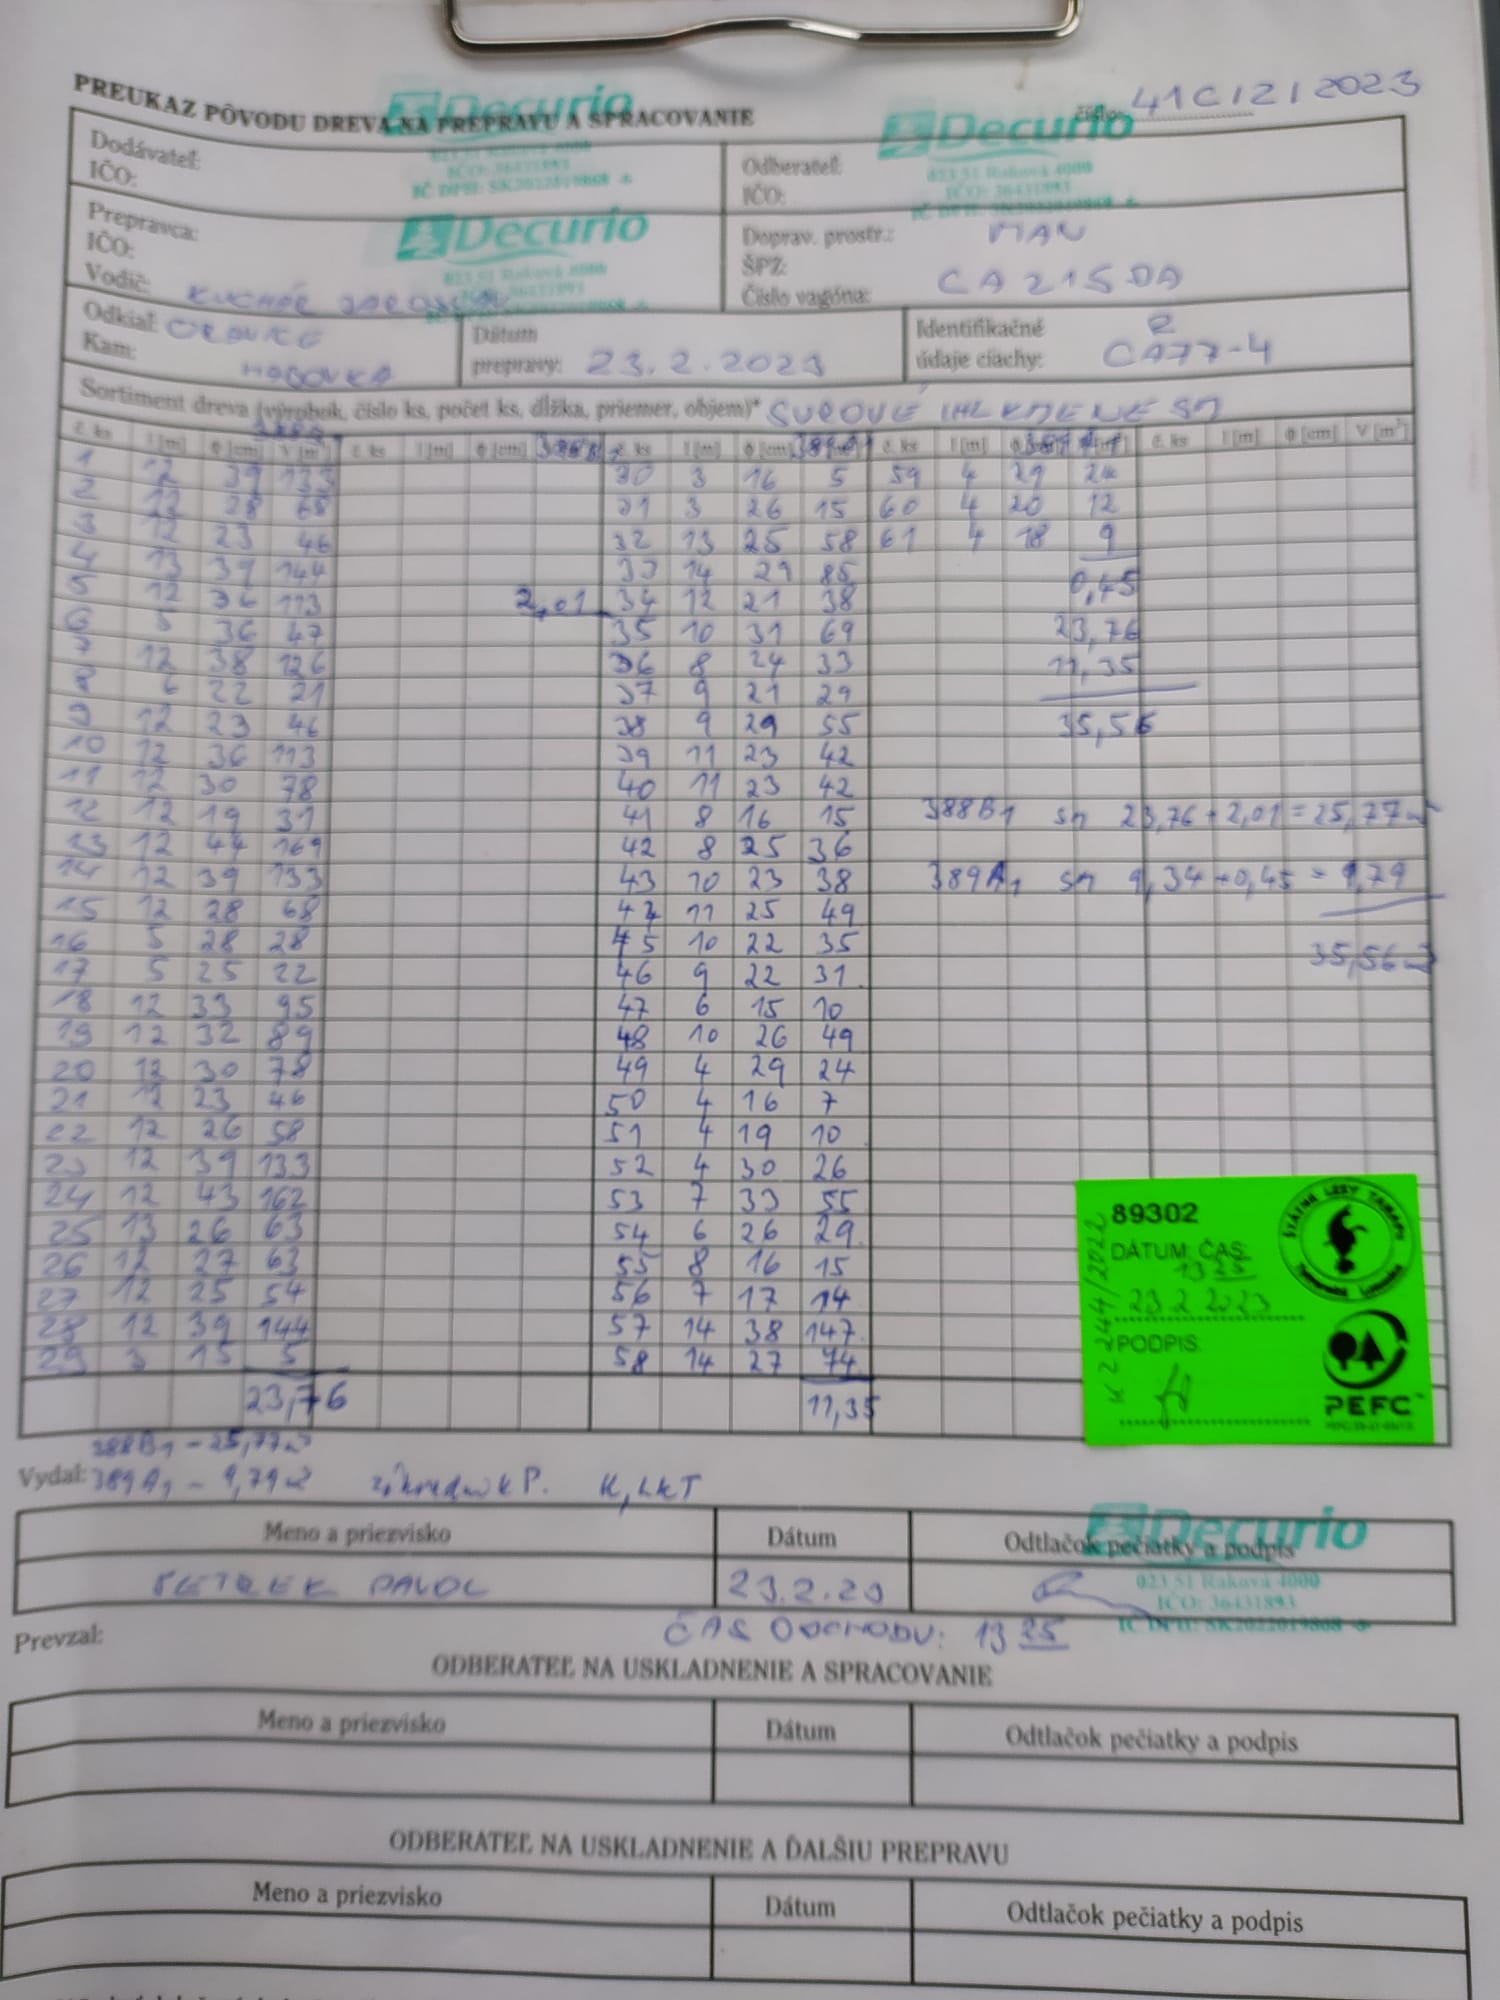 PREUKAZ PÔVODU DREVA NA PREPRAVU A SPRACOVANIE
číslo: 41C/2/2023
Decurio
Decurio
Dodávateľ:
IČO:
023 51 Raková 4000
IČO: 36431893
IČ DPH: SK2022019868
Odberateľ:
IČO:
023 51 Raková 4000
IČO: 36431893
IČ DPH: SK2022019868
Prepravca:
IČO:
Vodič:
Decurio
023 51 Raková 4000
IČO: 36431893
Doprav. prostr.: MAN
ŠPZ: CA 215 DA
Číslo vagóna:
Odkiaľ: ORAVICE
Kam: HABOVKA
Dátum
prepravy: 23.2.2023
Identifikačné
údaje ciachy: CA77-4
Sortiment dreva (výrobok, číslo ks, počet ks, dĺžka, priemer, objem)* SUROVÉ IHLIČ SM
č. ks l [m] φ [cm] V [m³] č. ks l [m] φ [cm] č. ks l [m] φ [cm] č. ks l [m] č. ks l [m] φ [cm] V [m³]
1 12 39 133 30 3 16 5 59 4 29 24
2 12 28 68 31 3 26 15 60 4 20 12
3 12 23 46 32 13 25 58 61 4 18 9
4 13 39 144 33 14 29 85 0,45
5 12 36 113 2,01 34 12 21 38
6 5 36 47 35 10 31 69 23,76
7 12 38 126 36 8 24 33 11,35
8 6 22 21 37 9 21 29
9 12 23 46 38 9 29 55 35,56
10 12 36 113 39 11 23 42
11 12 30 78 40 11 23 42
12 12 19 31 41 8 16 15 388B1 SM 23,76 + 2,01 = 25,77
13 12 44 169 42 8 25 36
14 12 39 133 43 10 23 38 389A1 SM 9,34 + 0,45 = 9,79
15 12 28 68 44 11 25 49
16 5 28 28 45 10 22 35 35,56
17 5 25 22 46 9 22 31
18 12 33 95 47 6 15 10
19 12 32 89 48 10 26 49
20 12 30 78 49 4 29 24
21 12 23 46 50 4 16 7
22 12 26 58 51 4 19 10
23 12 39 133 52 4 30 26
24 12 43 162 53 7 33 55
25 13 26 63 54 6 26 29
26 12 27 63 55 8 16 15
27 12 25 54 56 7 17 14
28 12 39 144 57 14 38 147
29 3 15 5 58 14 27 74
23,76 11,35
89302
DÁTUM: ČAS
13 25
23 2 2023
PODPIS:
K 2 244/2022
ŠTÁTNE LESY TANAPU
PEFC
388B1 - 25,77
Vydal: 389A1 - 9,79 K, LKT
Meno a priezvisko Dátum Odtlačok pečiatky a podpis
Decurio
PETREK PAVOL 23.2.23
023 51 Raková 4000
IČO: 36431893
IČ DPH: SK2022019868
ČAS ODCHODU: 13 25
Prevzal:
ODBERATEĽ NA USKLADNENIE A SPRACOVANIE
Meno a priezvisko Dátum Odtlačok pečiatky a podpis
ODBERATEĽ NA USKLADNENIE A ĎALŠIU PREPRAVU
Meno a priezvisko Dátum Odtlačok pečiatky a podpis